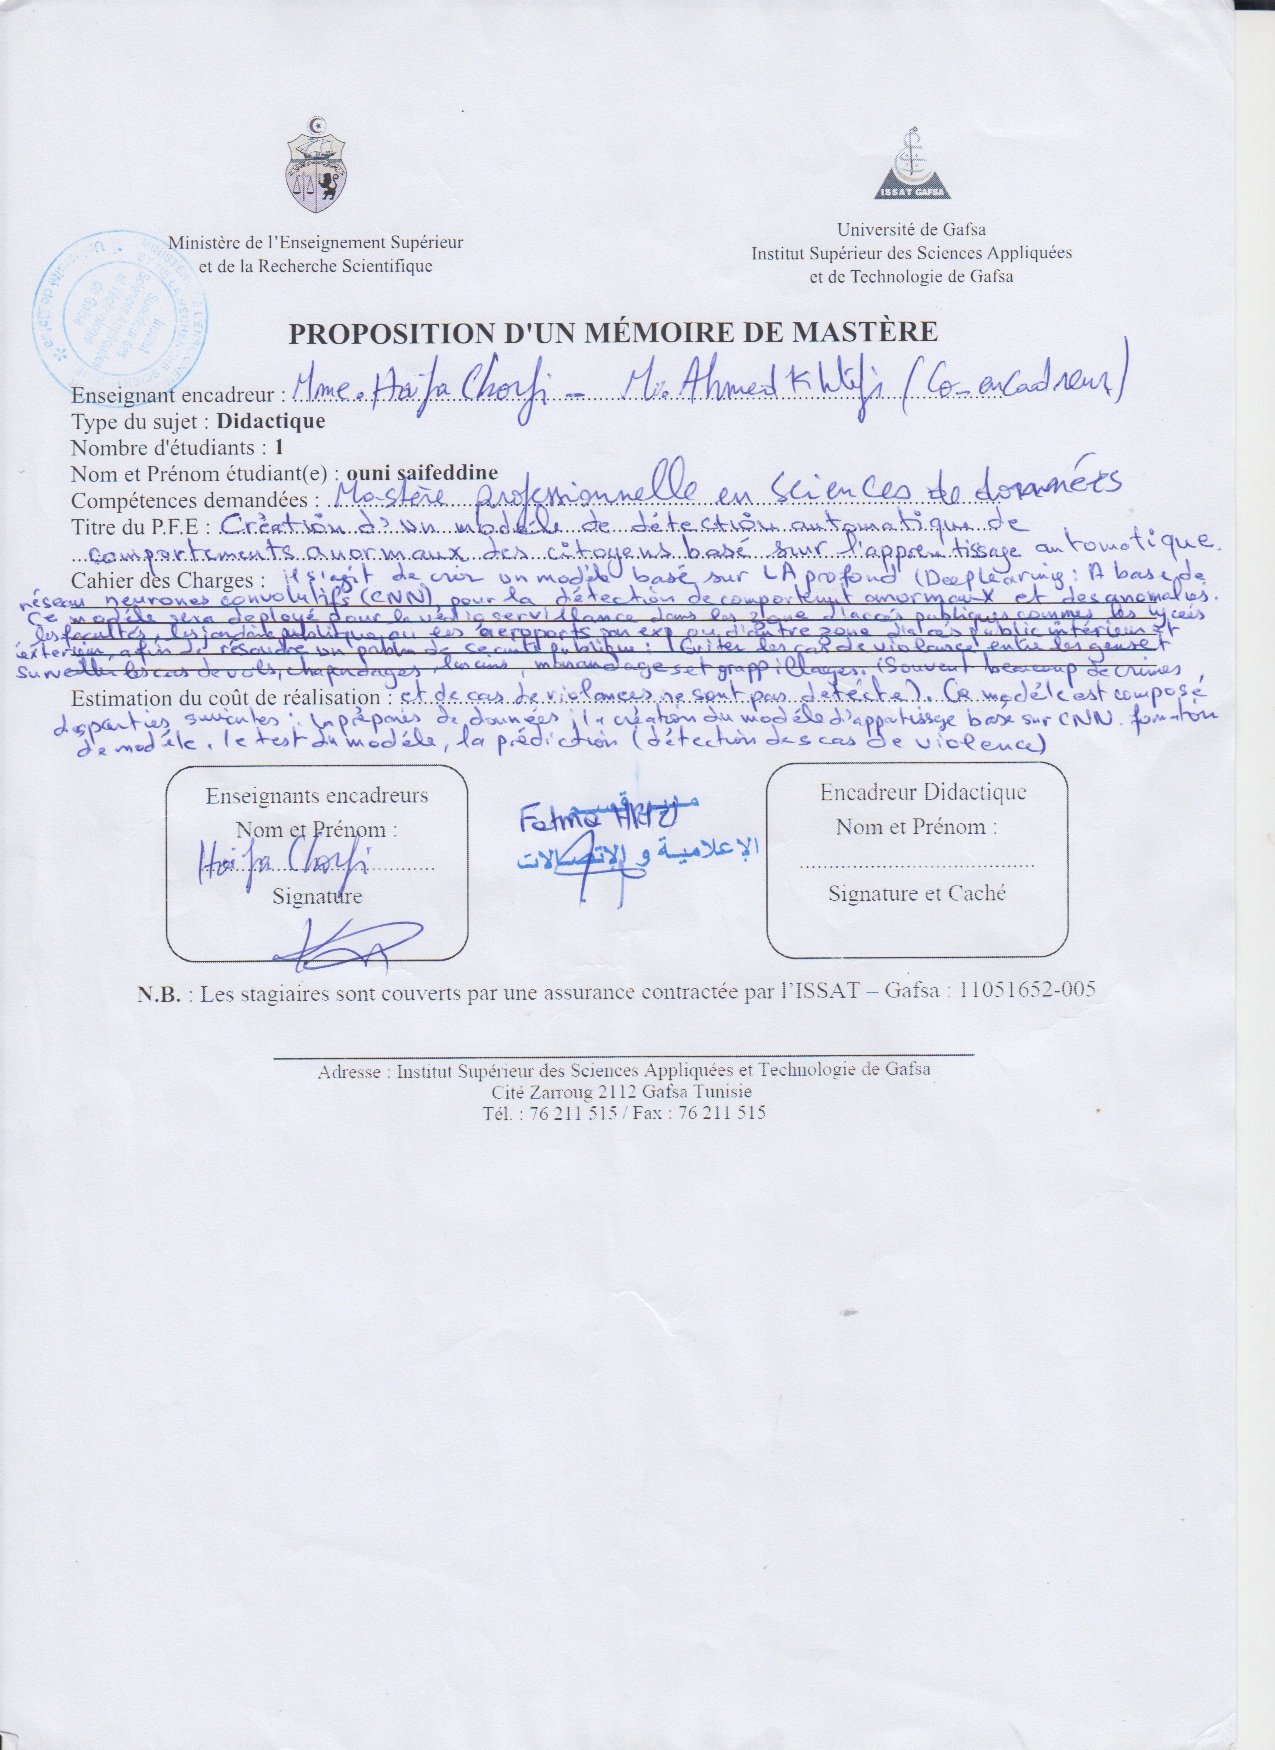 ISSAT GAFSA
Ministère de l'Enseignement Supérieur
et de la Recherche Scientifique
Université de Gafsa
Institut Supérieur des Sciences Appliquées
et de Technologie de Gafsa
PROPOSITION D'UN MÉMOIRE DE MASTÈRE
Enseignant encadreur : Mme. Haifa Chorfi - Mr. Ahmed Khlifi (Co-encadreur)
Type du sujet : Didactique
Nombre d'étudiants : 1
Nom et Prénom étudiant(e) : ouni saifeddine
Compétences demandées : Mastère professionnelle en sciences de données
Titre du P.F.E : Création d'un modèle de détection automatique de
comportements anormaux des citoyens basé sur l'apprentissage automatique.
Cahier des Charges : il s'agit de créer un modèle basé sur LA profond (Deep Learning : A base de
réseau neurones convolutifs (CNN) pour la détection de comportement anormaux et des anomalies.
Ce modèle sera deployé pour la dans les zone d'accés publiques commes les lycées
les facultés, les jardins publique, ou les aeroports par exp ou d'autre zone d'accés public intérieur et
extérieur, afin de résoudre un de sécurité publique : Eviter les cas de violence entre les gens et
surveiller les cas de vols, chapardages, larcins, maraudages et grappillages. (Souvent beaucoup de crimes,
Estimation du coût de réalisation : et de cas de violances ne sont pas detecte). Ce modèle est composé
des parties suivantes : la de données, la création du modèle basé sur CNN. formation
de modèle, le test du modèle, la prédiction (détection des cas de violence)
Enseignants encadreurs
Nom et Prénom :
Haifa Chorfi
Signature
Fatma
الإعلامية و الإتصالات
Encadreur Didactique
Nom et Prénom :
Signature et Caché
N.B. : Les stagiaires sont couverts par une assurance contractée par l'ISSAT – Gafsa : 11051652-005
Adresse : Institut Supérieur des Sciences Appliquées et Technologie de Gafsa
Cité Zarroug 2112 Gafsa Tunisie
Tél. : 76 211 515 / Fax : 76 211 515